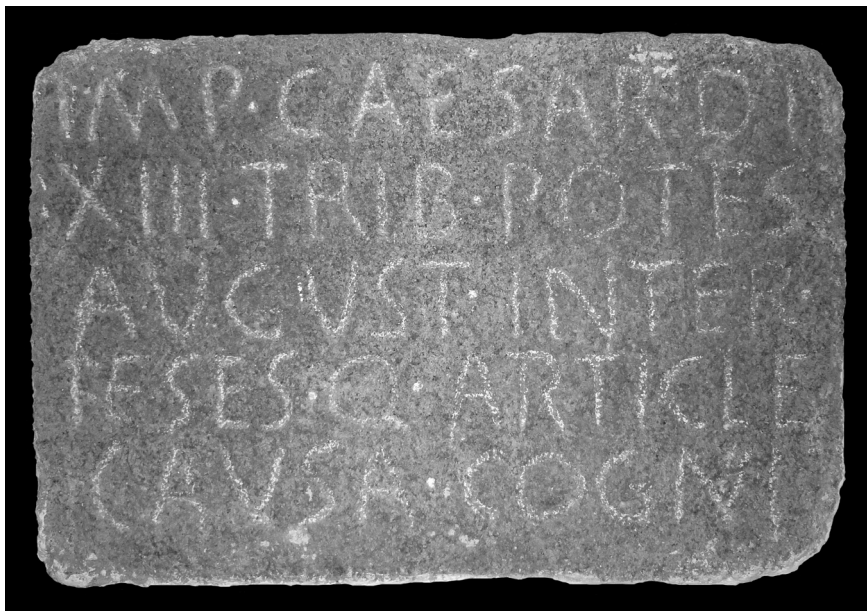 IMP·CAESAR DI
XIII·TRIB·POTES
AUGUST·INTER
FESES·Q·ARTICLE
CAVSA·COGNI